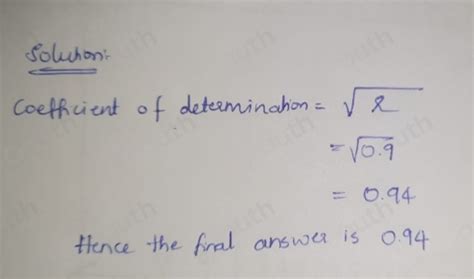 Solution:
Coefficient of determination = √r
= √0.9
= 0.94
Hence the final answer is 0.94